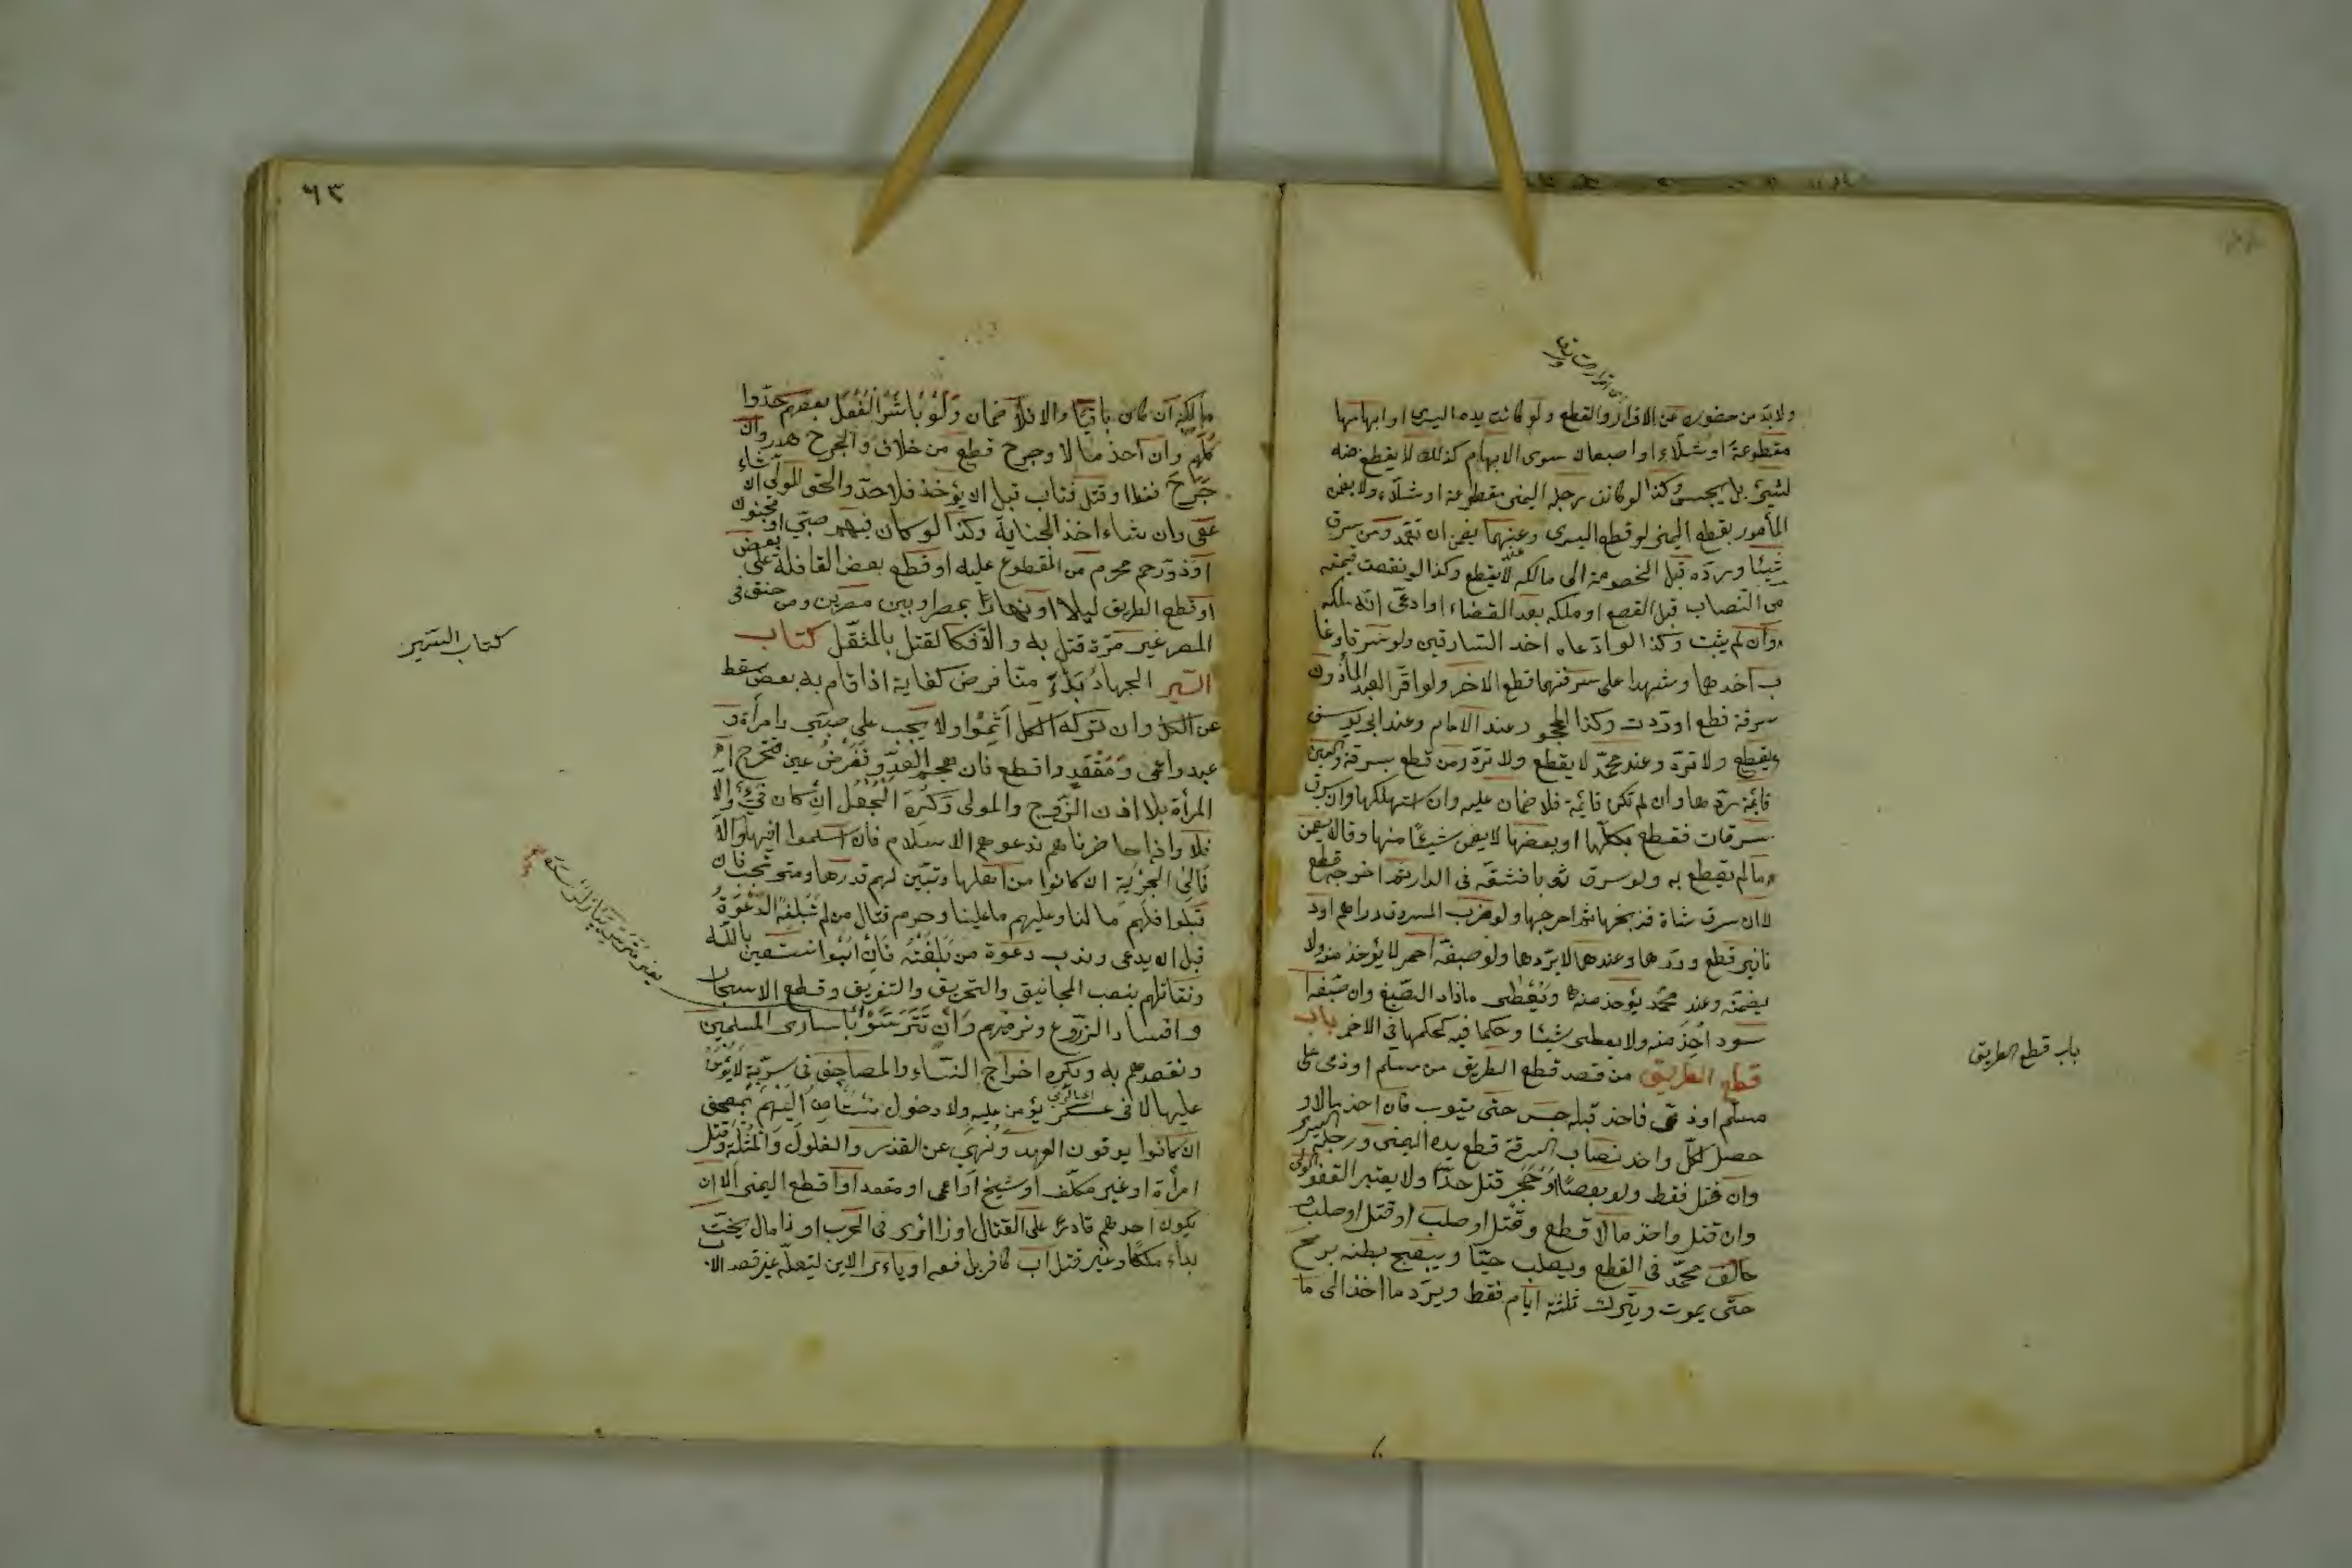 ولا بد من حضوره عن الاقرار والقطع ولو كانت يده اليسرى او ابهامها
مقطوعة او شلاء او اصبعان سوى الابهام كذلك لا يقطع منه
لشيئ بل يحبس وكذا لو كانت رجله اليمنى مقطوعة او شلاء ولا يضمن
المأمور بقطع اليمنى لو قطع اليسرى وعندهما يضمن ان تعمد ومن سرق
شيئا ورده قبل الخصومة الى مالكه لا يقطع وكذا لو نقصت قيمته
من النصاب قبل القطع او ملكه بعد القضاء او ادعى انه ملكه
وان لم يثبت وكذا لو ادعاه احد السارقين ولو سرقا وغا
ب احدهما وشهدا على سرقتهما قطع الاخر ولو اقر العبد المأذون
سرقة قطع وردت وكذا المحجور عند الامام وعند ابى يوسف
يقطع ولا ترد وعند محمد لا يقطع ولا ترد ومن قطع بسرقة والعين
قائمة ردها وان لم تكن قائمة فلا ضمان عليه وان استهلكها وان سرق
سرقات فقطع بكلها او بعضها لا يضمن شيئا منها وقالا يضمن
ما لم يقطع به ولو سرق ثوبا فشقه فى الدار ثم اخرجه قطع
لا ان سرق شاة فذبحها ثم اخرجها ولو ضرب المسروق دراهم او د
نانير قطع وردها وعندهما لا يردها ولو صبغه احمر لا يؤخذ منه ولا
يضمنه وعند محمد يؤخذ منه ويعطى ما زاد الصبغ وان صبغه ا
سود اخذ منه ولا يعطى شيئا وحكما فيه كحكمها فى الاحمر باب
قطع الطريق من قصد قطع الطريق من مسلم او ذمى على
مسلم او ذمى فاخذ قبله حبس حتى يتوب فان اخذ مالا و
حصل لكل واحد نصاب السرقة قطع يده اليمنى ورجله اليسرى
وان قتل فقط ولو بعصا او حجر قتل حدا ولا يعتبر العفو الولى
وان قتل واخذ مالا قطع وقتل او صلب او قتل او صلب
خالف محمد فى القطع ويصلب حيا ويبعج بطنه برمح
حتى يموت ويترك ثلثة ايام فقط ويرد ما اخذ الى ما
باب قطع الطريق
٦٣
مالكه ان كان باقيا والا فلا ضمان ولو باشر الفعل بعضهم حدوا
كلهم وان اخذ مالا وجرح قطع من خلاف والجرح هدر وان
جرح فقط او قتل فتاب قبل ان يؤخذ فلا حد والحق للولى ان شاء
عفى وان شاء اخذ الجناية وكذا لو كان فيهم صبى او مجنون
او ذو رحم محرم من المقطوع عليه او قطع بعض القافلة على بعض
او قطع الطريق ليلا او نهارا بمصر او بين مصرين ومن خنق فى
المصر غير مرة قتل به والا فكالقتل بالمثقل كتاب
السير الجهاد بدء منا فرض كفاية اذا قام به بعض سقط
عن الكل وان تركه الكل اثموا ولا يجب على صبى وامرأة و
عبد واعمى ومقعد واقطع فان هجم العدو ففرض عين فتخرج ا
المرأة بلا اذن الزوج والمولى وكره الجعل ان كان فيئ والا
فلا واذا حاصرناهم ندعوهم الاسلام فان اسلموا فبها والا
فالى الجزية ان كانوا من اهلها وتبين لهم قدرها ومتى تجب فان
قبلوا فلهم ما لنا وعليهم ما علينا وحرم قتال من لم تبلغه الدعوة
قبل ان يدعى وندب دعوة من بلغته فان ابوا نستعين بالله
ونقاتلهم بنصب المجانيق والتحريق والتغريق وقطع الاشجار
وافساد الزروع ونرميهم وان تترسوا بأسارى المسلمين
ونقصدهم به ويكره اخراج النساء والمصاحف فى سرية لا يؤمن
عليها لا فى عسكر يؤمن عليه ولا دخول مستأمن اليهم بمصحف
ان كانوا يوفون العهد ونهى عن الغدر والغلول والمثلة وقتل
امرأة او غير مكلف او شيخ او اعمى او مقعد او اقطع اليمنى الا ان
يكون احدهم قادرا على القتال او ذا رأى فى الحرب او ذا مال يحث
به او ملكا وعن قتل اب كافر بل فعه او ياء بر الابن ليقتله غير قصد الا
كتاب السير